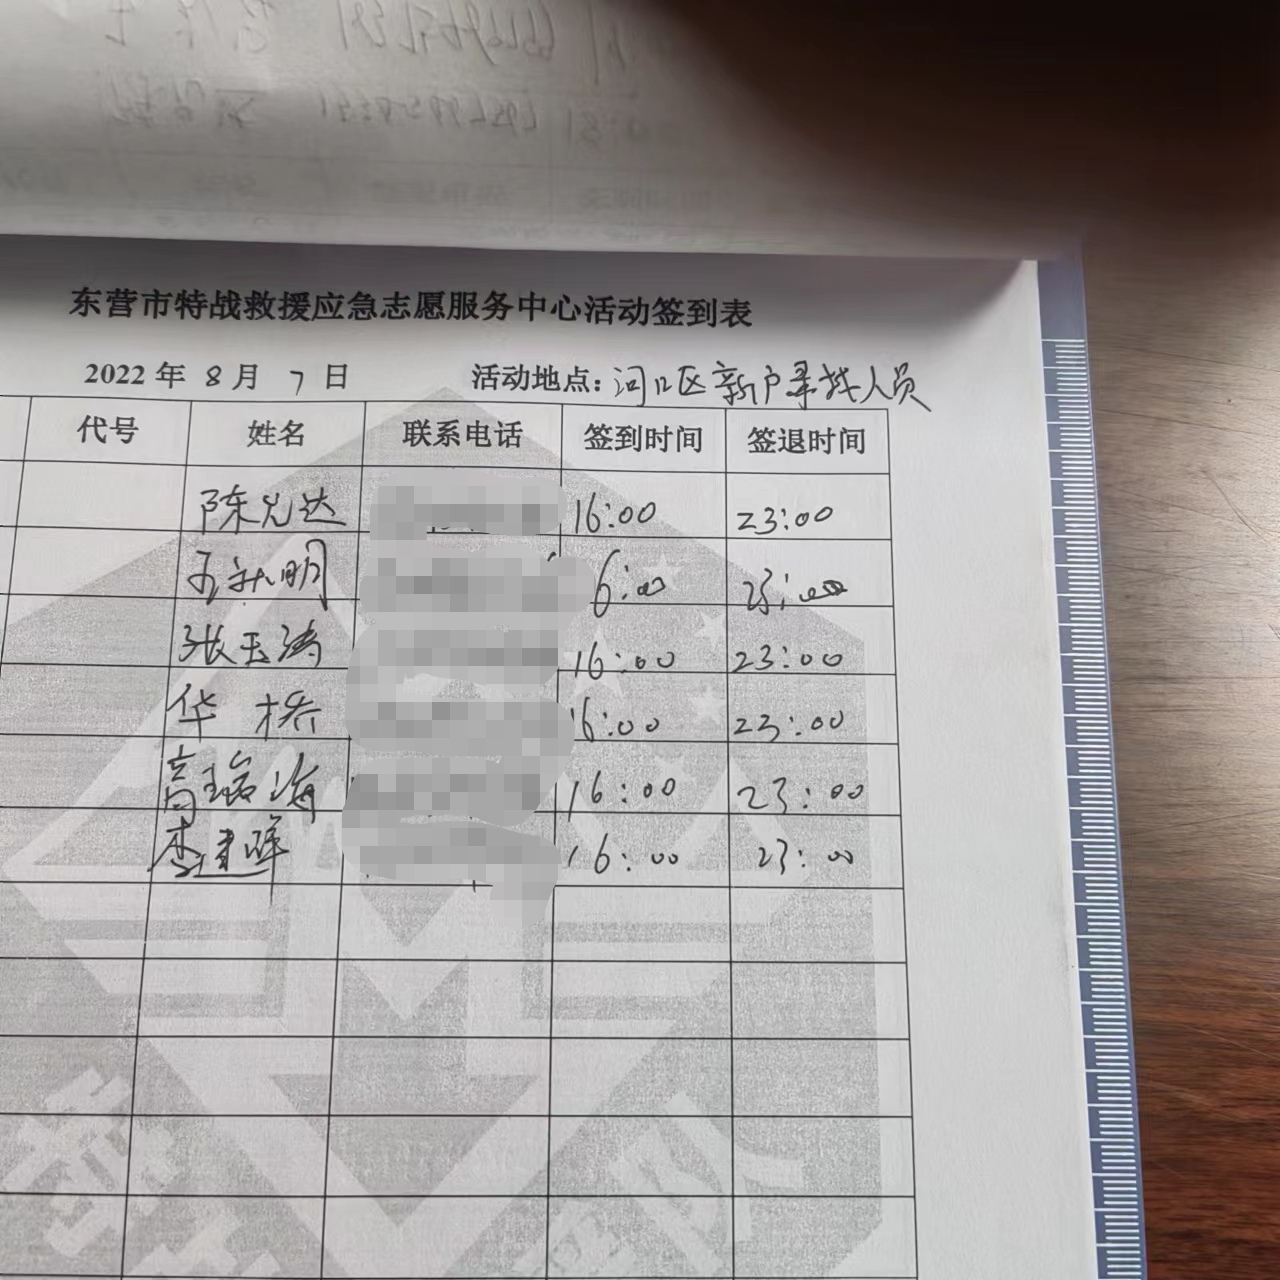 东营市特战救援应急志愿服务中心活动签到表
2022 年 8 月 7 日 活动地点：河口区新户寻找人员
代号 姓名 联系电话 签到时间 签退时间
陈允达 16:00 23:00
王秋明 16:00 23:00
张玉涛 16:00 23:00
华桥 16:00 23:00
高瑞海 16:00 23:00
李建晖 16:00 23:00